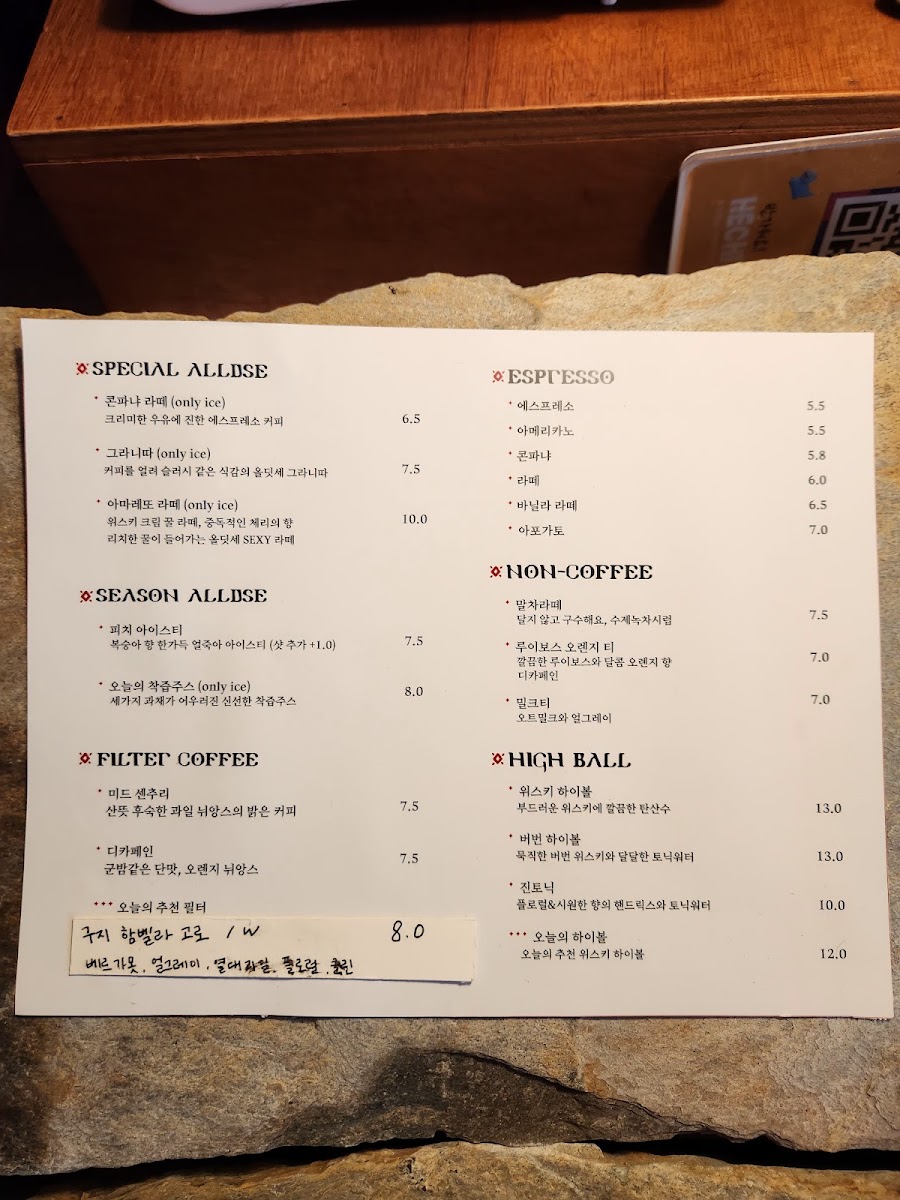 SPECIAL ALLDSE
콘파냐 라떼 (only ice)
크리미한 우유에 진한 에스프레소 커피 6.5
그라니따 (only ice)
커피를 얼려 슬러시 같은 식감의 올딧세 그라니따 7.5
아마레또 라떼 (only ice)
위스키 크림 꿀 라떼, 중독적인 체리의 향 10.0
리치한 꿀이 들어가는 올딧세 SEXY 라떼
SEASON ALLDSE
피치 아이스티
복숭아 향 한가득 얼죽아 아이스티 (샷 추가 +1.0) 7.5
오늘의 착즙주스 (only ice)
세가지 과채가 어우러진 신선한 착즙주스 8.0
FILTER COFFEE
미드 센추리
산뜻 후숙한 과일 뉘앙스의 밝은 커피 7.5
디카페인
군밤같은 단맛, 오렌지 뉘앙스 7.5
오늘의 추천 필터
구지 함벨라 고로 / W 8.0
베르가못, 얼그레이, 열대과일, 플로랄, 클린
ESPRESSO
에스프레소 5.5
아메리카노 5.5
콘파냐 5.8
라떼 6.0
바닐라 라떼 6.5
아포가토 7.0
NON-COFFEE
말차라떼
달지 않고 구수해요, 수제녹차시럽 7.5
루이보스 오렌지 티
깔끔한 루이보스와 달콤 오렌지 향 7.0
디카페인
밀크티 7.0
오트밀크와 얼그레이
HIGH BALL
위스키 하이볼
부드러운 위스키에 깔끔한 탄산수 13.0
버번 하이볼
묵직한 버번 위스키와 달달한 토닉워터 13.0
진토닉
플로럴&시원한 향의 핸드릭스와 토닉워터 10.0
오늘의 하이볼
오늘의 추천 위스키 하이볼 12.0